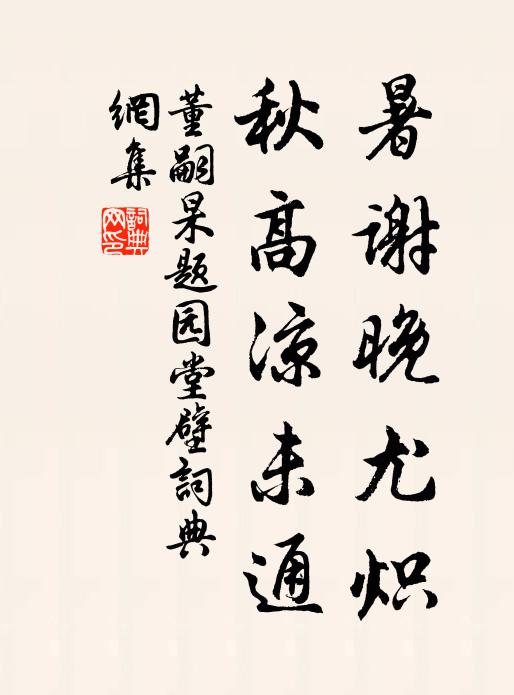 暑谢晚尤炽
秋高凉未通
董嗣杲题园堂壁詞典
網集
詞典
网印